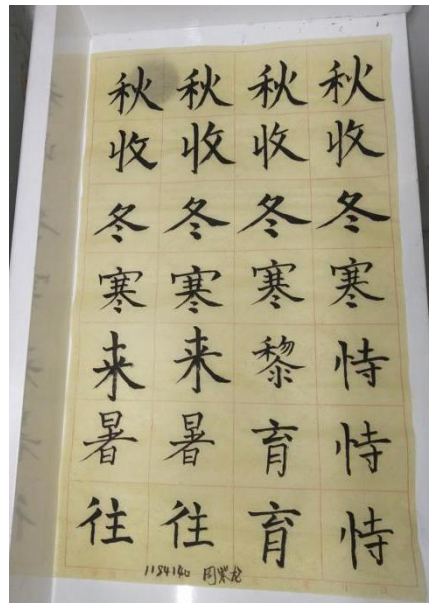 秋秋秋秋
收收收收
冬冬冬冬
寒寒寒寒
来来黎恃
暑暑育恃
往往育恃
1184140 周紫龙